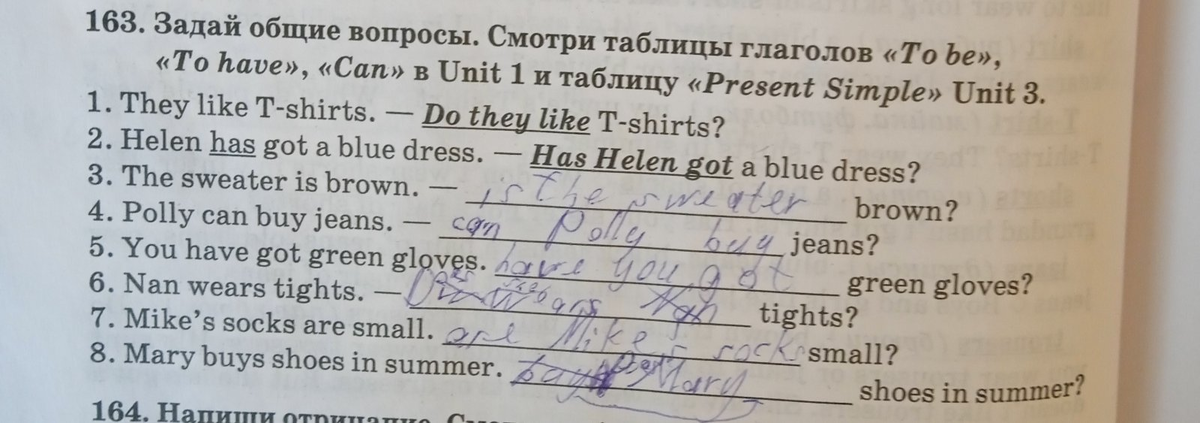 163. Задай общие вопросы. Смотри таблицы глаголов «To be»,
«To have», «Can» в Unit 1 и таблицу «Present Simple» Unit 3.
1. They like T-shirts. — Do they like T-shirts?
2. Helen has got a blue dress. — Has Helen got a blue dress?
3. The sweater is brown. — is the sweater brown?
4. Polly can buy jeans. — can Polly buy jeans?
5. You have got green gloves. have you got green gloves?
6. Nan wears tights. — tights?
7. Mike's socks are small. are Mike's socks small?
8. Mary buys shoes in summer. Mary shoes in summer?
164. Напиши отрицание.